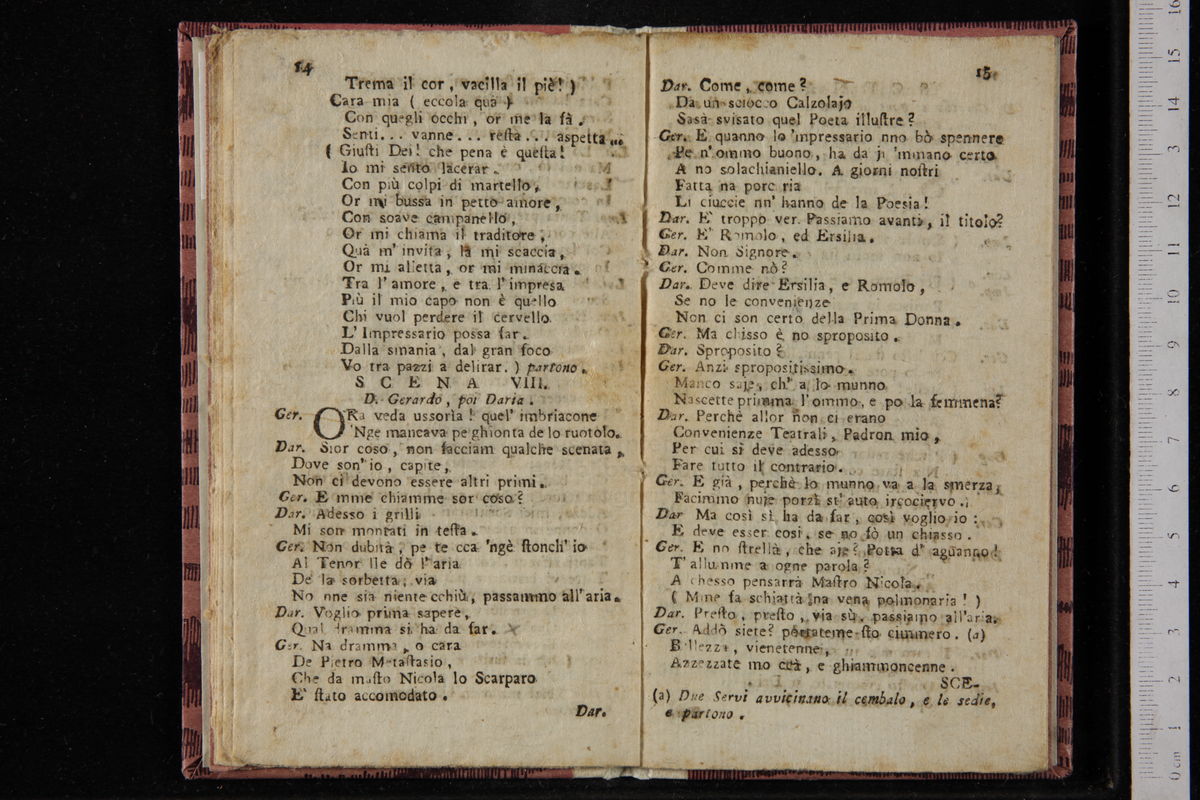 14
Trema il cor, vacilla il piè! )
Cara mia ( eccola quà )
Con quegli occhi, or me la fà.
Senti... vanne... reſta... aſpetta...
( Giuſti Dei! che pena è queſta!
Io mi sento lacerar.
Con più colpi di martello,
Or mi bussa in petto amore,
Con soave campanello,
Or mi chiama il traditore,
Quà m' invita, là mi scaccia,
Or mi alletta, or mi minaccia.
Tra l' amore, e tra l' impresa
Più il mio capo non è quello
Chi vuol perdere il cervello
L' Impressario possa far.
Dalla smania, dal gran foco
Vo tra pazzi a delirar. ) partono.
SCENA VIII.
D. Gerardo, poi Daria.
Ger. ORa veda ussoria! quel' imbriacone
'Nge mancava pe ghionta de lo ruotolo.
Dar. Sior coso, non facciam qualche scenata,
Dove son' io, capite,
Non ci devono essere altri primi.
Ger. E mme chiamme sor coso?
Dar. Adesso i grilli
Mi son montati in teſta.
Ger. Non dubità, pe te cca 'ngè ſtonch' io
Al Tenor lle dò l' aria
De la sorbetta, via
No nne sia niente cchiù, passammo all' aria.
Dar. Voglio prima sapere,
Qual dramma si ha da far.
Ger. Na dramma, o cara
De Pietro Metaſtasio,
Che da maſto Nicola lo Scarparo
E' ſtato accomodato.
Dar.
15
Dar. Come, come?
Da un sciocco Calzolajo
Sasà svisato quel Poeta illuſtre?
Ger. E quanno lo 'mpressario nno bò spennere
Pe n' ommo buono, ha da jì 'mmano certo
A no solachianiello. A giorni noſtri
Fatta na porc ria
Li ciuccie nn' hanno de la Poesia!
Dar. E' troppo ver. Passiamo avanti, il titolo?
Ger. E' Romolo, ed Ersilia.
Dar. Non Signore.
Ger. Comme nò?
Dar. Deve dire Ersilia, e Romolo,
Se no le convenienze
Non ci son certo della Prima Donna.
Ger. Ma chisso è no sproposito.
Dar. Sproposito?
Ger. Anzi spropositissimo.
Manco saje, ch' a lo munno
Nascette primma l' ommo, e po la femmena?
Dar. Perchè allor non ci erano
Convenienze Teatrali, Padron mio,
Per cui si deve adesso
Fare tutto il contrario.
Ger. E già, perchè lo munno va a la smerza,
Facimmo nuje porzì st' auto ircociervo.
Dar Ma così si ha da far, così voglio io:
E deve esser così, se no fò un chiasso.
Ger. E no ſtrellà, che aje? Potta d' aguanno!
T' allumme a ogne parola?
A chesso pensarrà Maſtro Nicola.
( Mme fa schiattà na vena polmonaria! )
Dar. Preſto, preſto, via sù, passiamo all' aria.
Ger. Addò siete? portateme ſto cimmero. (a)
Bellezza, vienetenne,
Azzezzate mo ccà, e ghiammoncenne.
SCE-
(a) Due Servi avvicinano il cembalo, e le sedie,
e partono.